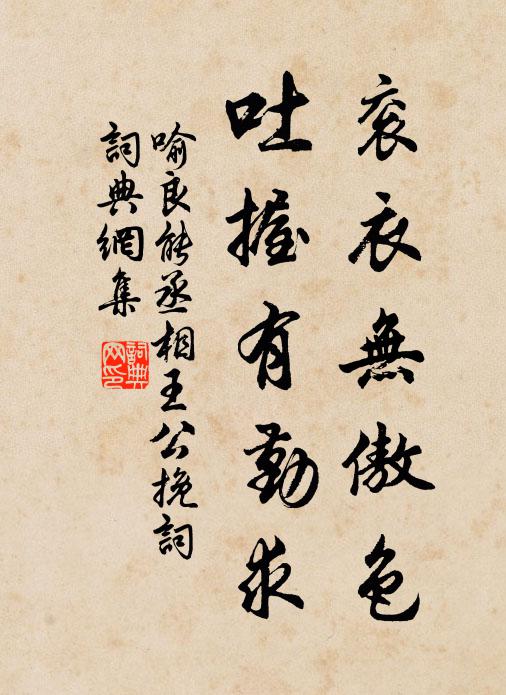 衮衣無傲色
吐握有勤求
喻良能丞相王公挽詞
詞典網集
詞典網印